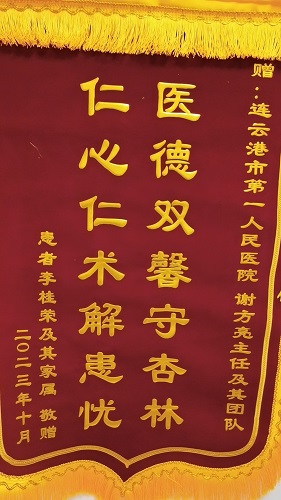 赠：连云港市第一人民医院 谢方亮主任及其团队
医德双馨守杏林
仁心仁术解患忧
患者李桂荣及其家属 敬赠
二〇二三年十月